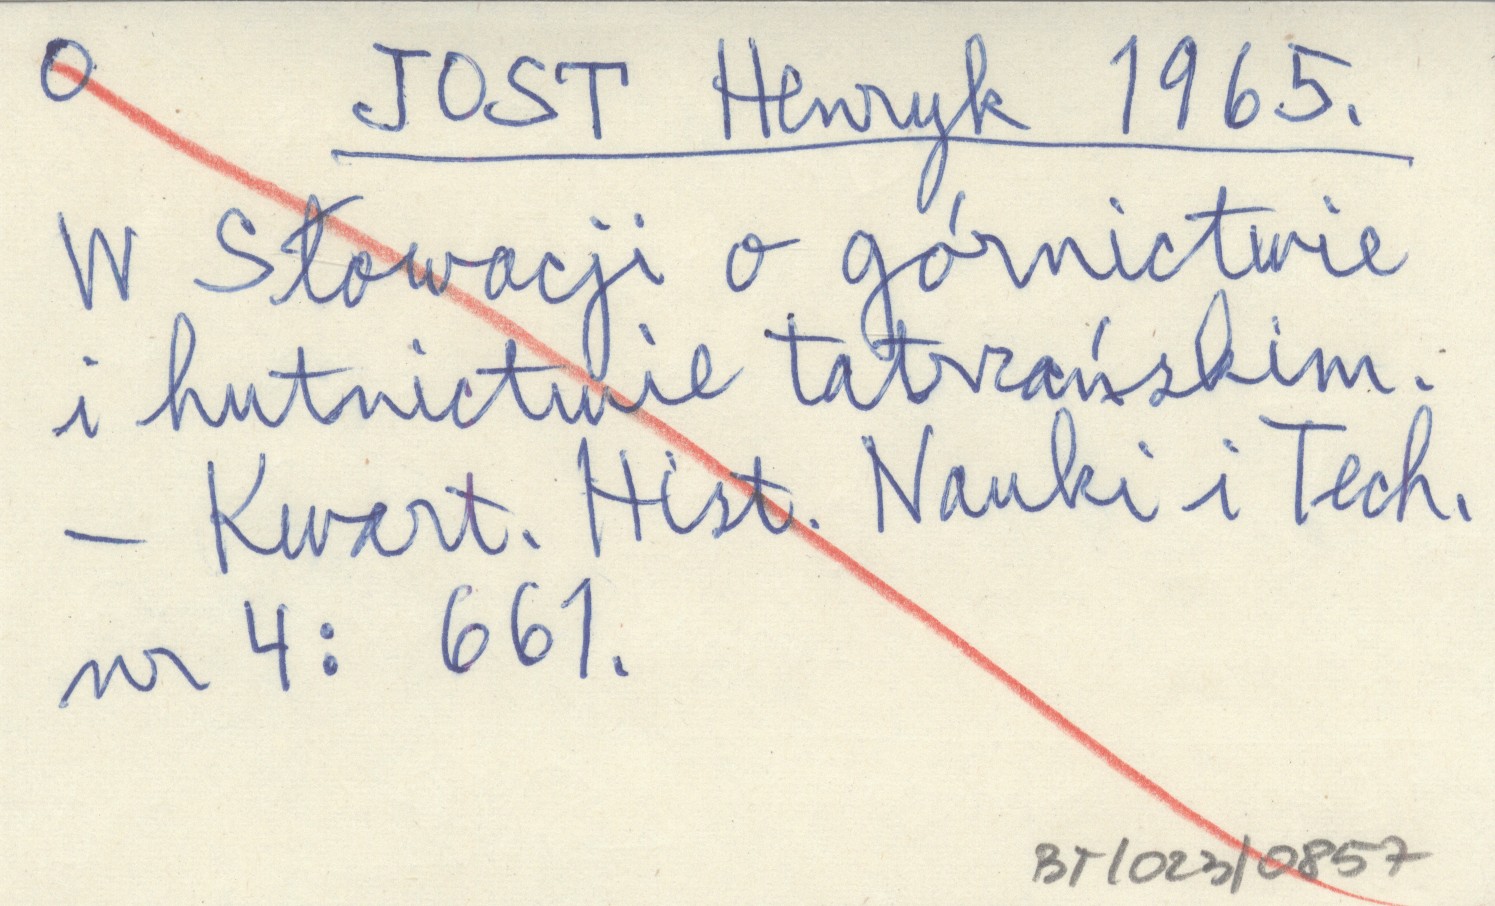 O JOST Henryk 1965.
W Słowacji o górnictwie
i hutnictwie tatrzańskim.
– Kwart. Hist. Nauki i Tech.
nr 4: 661.
BT/023/0857